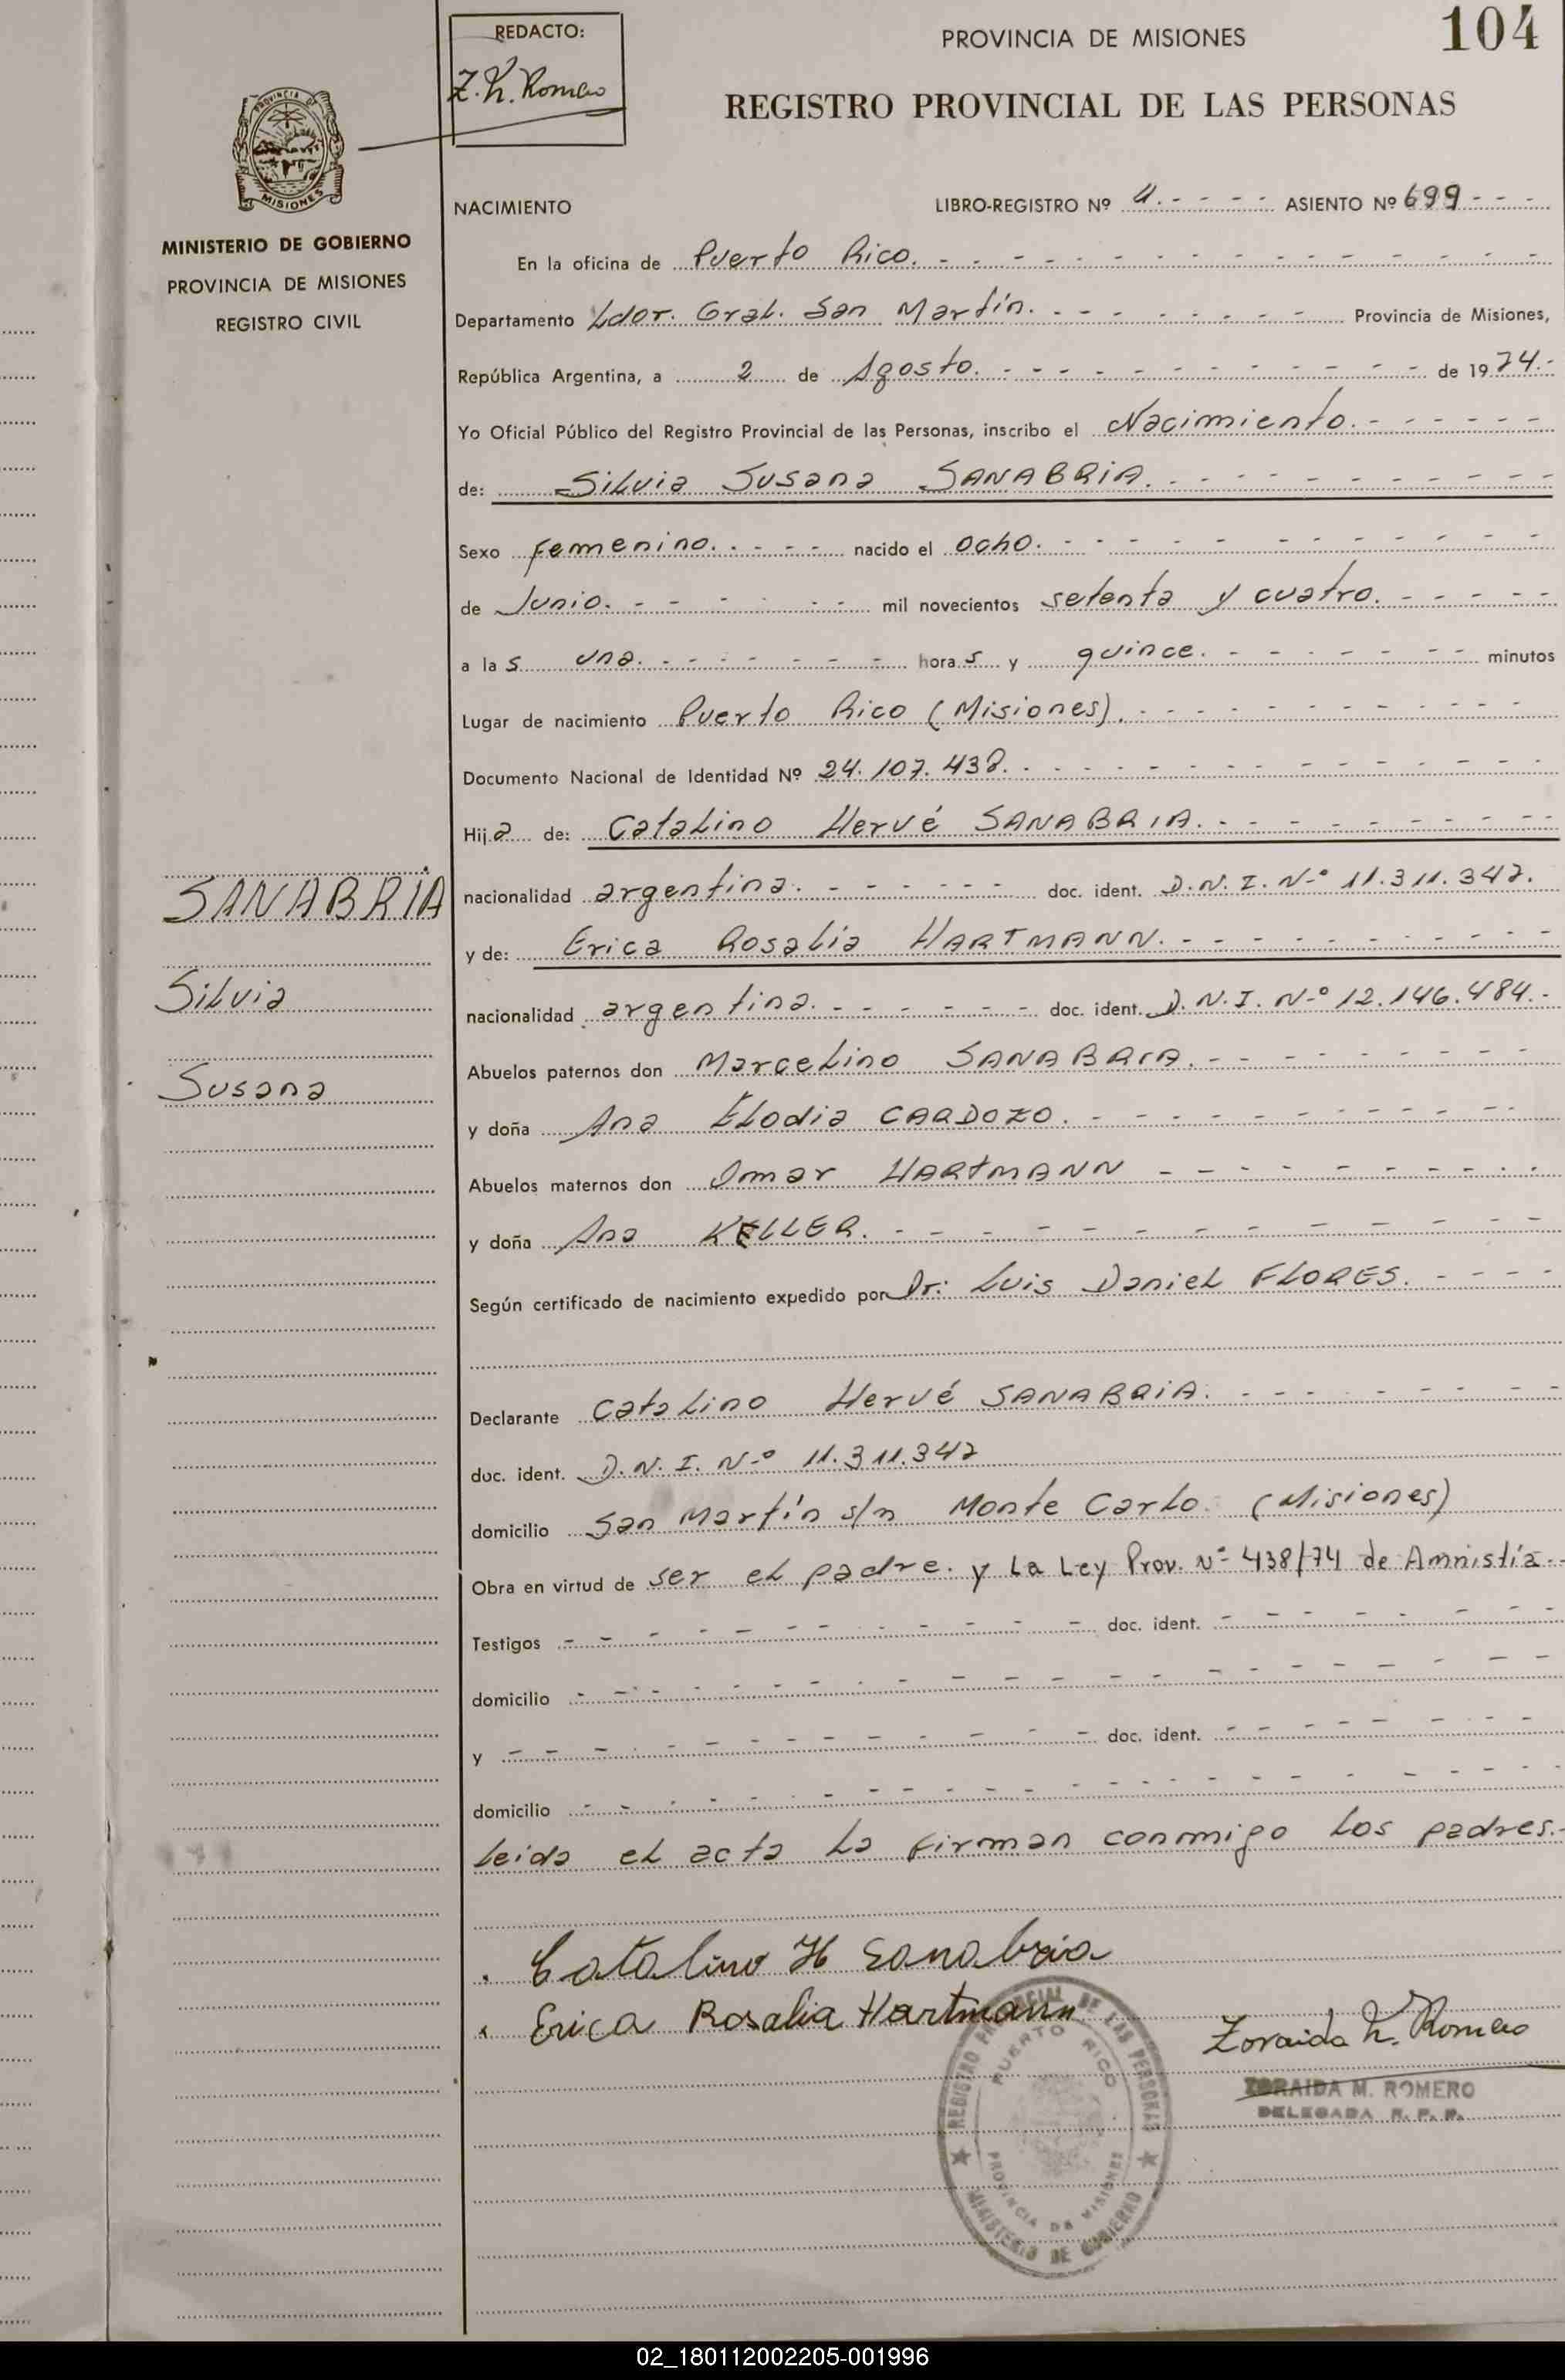 104
REDACTO:
Z. M. Romero
PROVINCIA DE MISIONES
REGISTRO PROVINCIAL DE LAS PERSONAS
PROVINCIA DE
MISIONES
MINISTERIO DE GOBIERNO
PROVINCIA DE MISIONES
REGISTRO CIVIL
NACIMIENTO LIBRO-REGISTRO Nº 4.- - - - - ASIENTO Nº 699 - - -
En la oficina de Puerto Rico.
Departamento Ldor. Gral. San Martín. Provincia de Misiones,
República Argentina, a 2 de Agosto. de 1974.-
Yo Oficial Público del Registro Provincial de las Personas, inscribo el Nacimiento.
de: Silvia Susana SANABRIA.
Sexo femenino. nacido el ocho.
de Junio. mil novecientos setenta y cuatro.
a las una. horas y quince. minutos
Lugar de nacimiento Puerto Rico (Misiones).
Documento Nacional de Identidad Nº 24.107.438.
Hija de: Catalino Hervé SANABRIA.
nacionalidad argentina. doc. ident. D.N.I. Nº 11.311.347.
y de: Erica Rosalia HARTMANN.
nacionalidad argentina. doc. ident. D.N.I. Nº 12.146.484.-
Abuelos paternos don Marcelino SANABRIA.
y doña Ana Elodia CARDOZO.
Abuelos maternos don Omar HARTMANN
y doña Ana KELLER.
Según certificado de nacimiento expedido por Dr: Luis Daniel FLORES.
Declarante Catalino Hervé SANABRIA.
doc. ident. D.N.I. Nº 11.311.347
domicilio San Martín s/n Monte Carlo. (Misiones)
Obra en virtud de ser el padre. y La Ley Prov. Nº 438/74 de Amnistía.-
Testigos doc. ident.
domicilio
y doc. ident.
domicilio
Leida el acta la firman conmigo los padres.-
SANABRIA
Silvia
Susana
Catalino H Sanabria
Erica Rosalia Hartmann
Zoraida M. Romero
ZORAIDA M. ROMERO
DELEGADA R. P. P.
REGISTRO PROVINCIAL DE LAS PERSONAS
PUERTO RICO
PROVINCIA DE MISIONES
MINISTERIO DE GOBIERNO
02_180112002205-001996